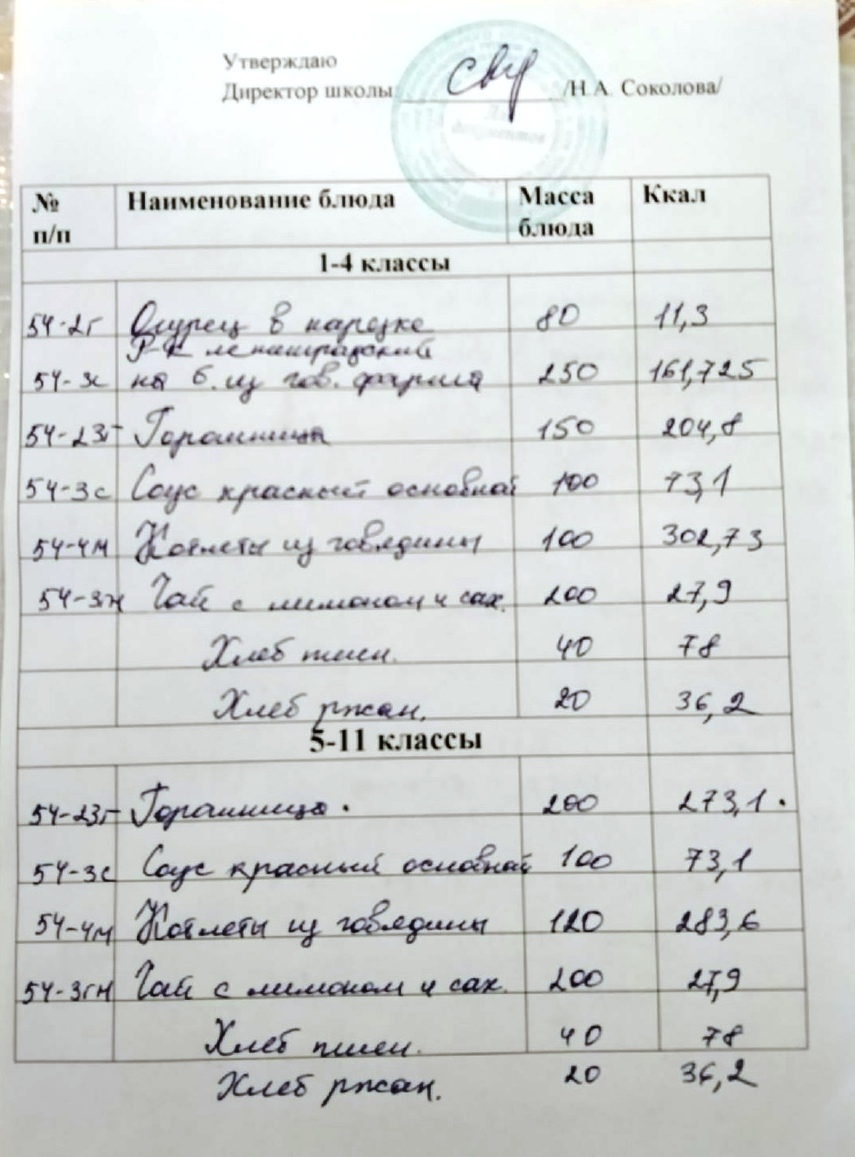 Утверждаю
Директор школы /Н.А. Соколова/
Для
документов
№ п/п Наименование блюда Масса блюда Ккал
1-4 классы
54-2г Огурец в нарезке 80 11,3
Р-к ленинградский
54-3с на б. из гов. фарша 250 161,725
54-23г Горошница 150 204,8
54-3с Соус красный основной 100 73,1
54-4м Котлеты из говядины 100 302,73
54-3гн Чай с лимоном и сах. 200 27,9
Хлеб пшен. 40 78
Хлеб ржан. 20 36,2
5-11 классы
54-23г Горошница. 200 273,1.
54-3с Соус красный основной 100 73,1
54-4м Котлеты из говядины 120 283,6
54-3гн Чай с лимоном и сах. 200 27,9
Хлеб пшен. 40 78
Хлеб ржан. 20 36,2